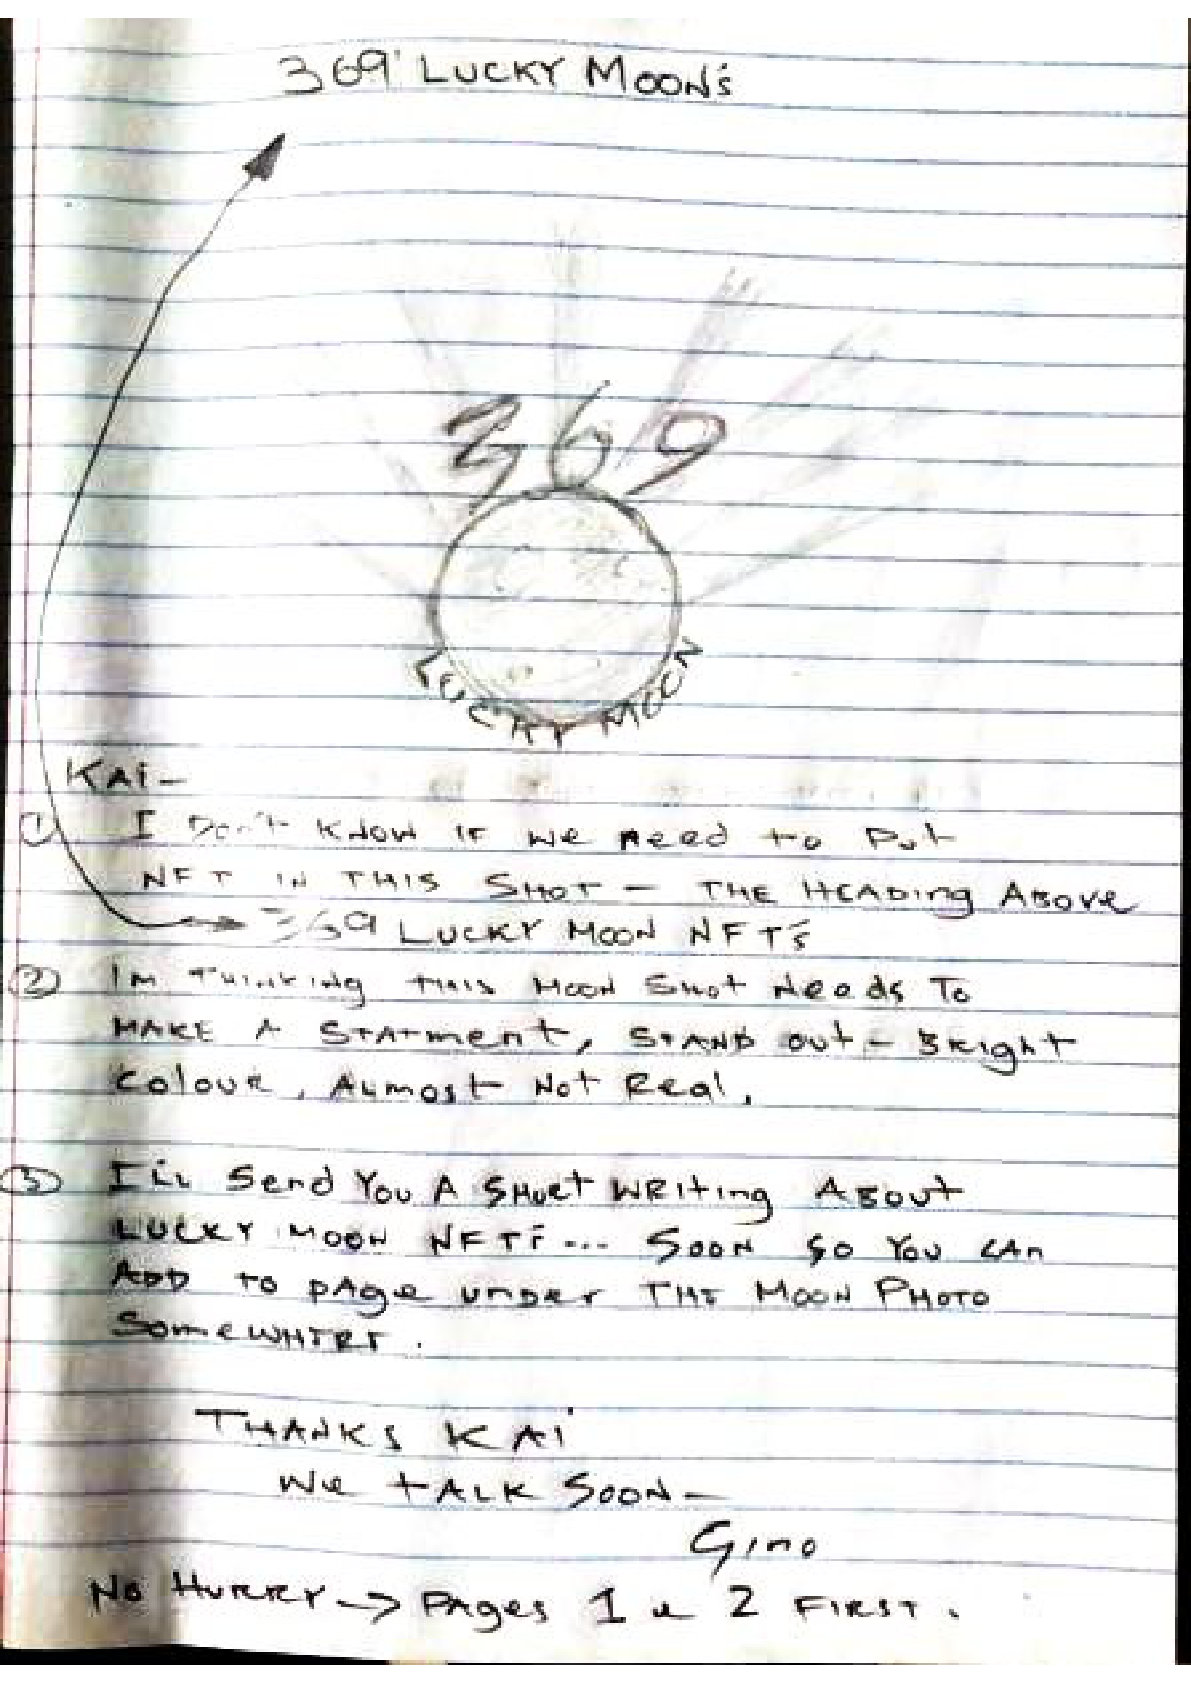 369 LUCKY MOON'S
369
LUCKY MOON
KAi-
① I Don't KNOW IF WE NEED to Put
NFT IN THIS SHOT - THE HEADING ABOVE
369 LUCKY MOON NFT'S
② IM THINKING THIS MOON SHOT NEEDS TO
MAKE A STATMENT, STAND OUT - BRIGHT
COLOUR, ALMOST NOT REAL.
③ I'LL SEND YOU A SHORT WRITING ABOUT
LUCKY MOON NFT'S... SOON SO YOU CAN
ADD TO PAGE UNDER THE MOON PHOTO
SOMEWHERE.
THANKS KAi
WE TALK SOON -
Gino
NO HURRY → PAGES 1 & 2 FIRST.